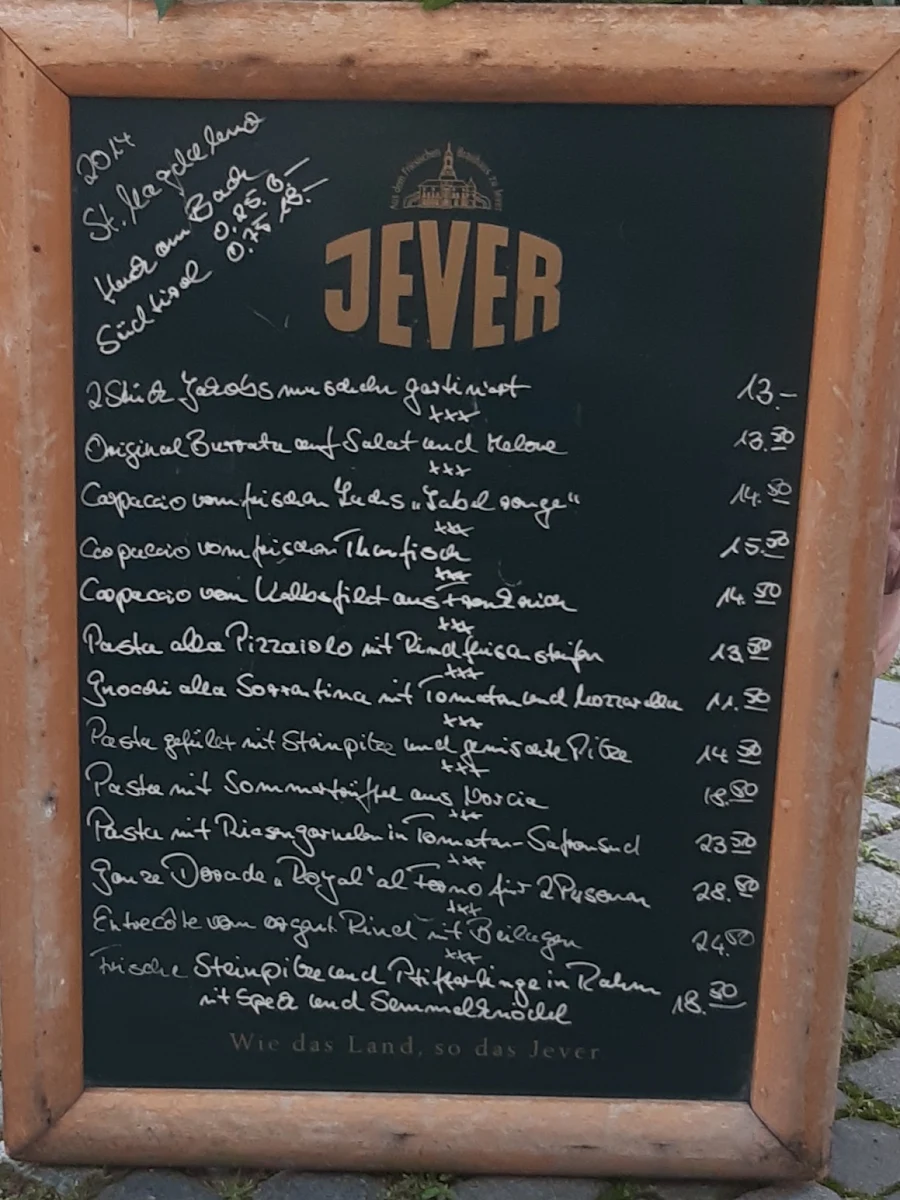 2014
St. Magdalena
Huck am Bach
Südtirol 0,25 6.-
0.75 18.-
Aus dem Friesischen Brauhaus zu Jever
JEVER
2 Stück Jakobsmuscheln gartiniert 13.-
***
Original Burrata auf Salat und Melone 13.50
***
Carpaccio vom frischen Lachs „Label rouge“ 14.50
***
Carpaccio vom frischen Thunfisch 15.50
***
Carpaccio vom Kalbsfilet aus Frankreich 14.50
***
Pasta alla Pizzaiolo mit Rindfleischstreifen 13.50
***
Gnocchi alla Sorrentina mit Tomaten und Mozzarella 11.50
***
Pasta gefüllt mit Steinpilze und gemischte Pilze 14.50
***
Pasta mit Sommertrüffel aus Norcia 18.50
***
Pasta mit Riesengarnelen in Tomaten-Safransud 23.50
***
Ganze Dorade „Royal“ al Forno für 2 Personen 28.50
***
Entrecôte vom argent. Rind mit Beilagen 24.50
***
Frische Steinpilze und Pfifferlinge in Rahm
mit Speck und Semmelknödel 18.50
Wie das Land, so das Jever